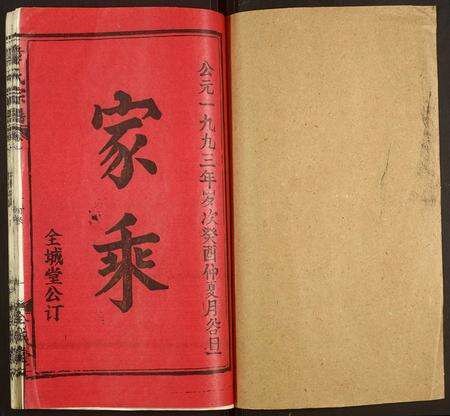 公元一九九三年岁次癸酉仲夏月谷旦
家乘
全城堂公订